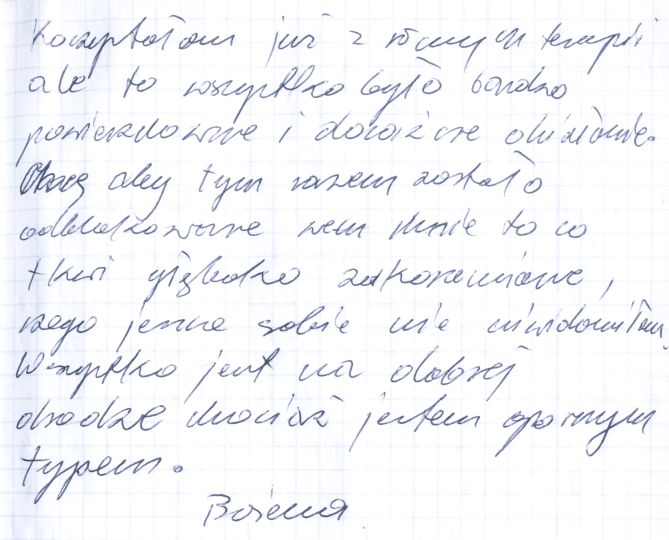 Korzystałam już z różnych terapii
ale to wszystko było bardzo
powierzchowne i doraźne działanie.
Chcę aby tym razem zostało
odblokowane we mnie to co
tkwi głęboko zakorzenione,
czego jeszcze sobie nie uwidomiłam.
Wszystko jest na dobrej
drodze chociaż jestem opornym
typem.
Bożena